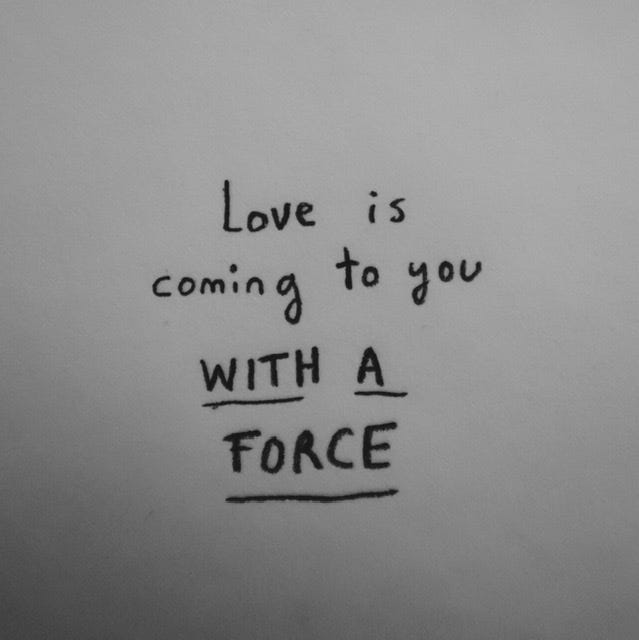 Love is
coming to you
WITH A
FORCE